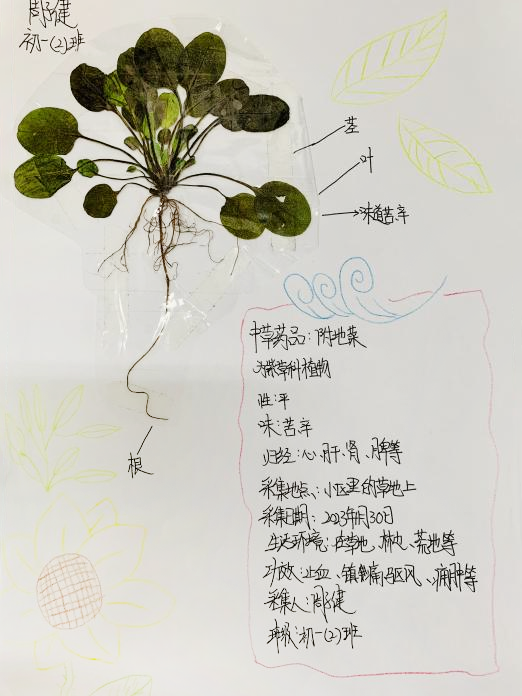 周子健
初一(2)班
茎
叶
味道苦辛
根
中草药品:附地菜
为紫草科植物
性:平
味:苦辛
归经:心、肝、肾、脾等
采集地点:小区里的草地上
采集日期:2023年1月30日
生活环境:在草地、林内、荒地等
功效:止血、镇痛驱风、痈肿等
采集人:周子健
班级:初一(2)班